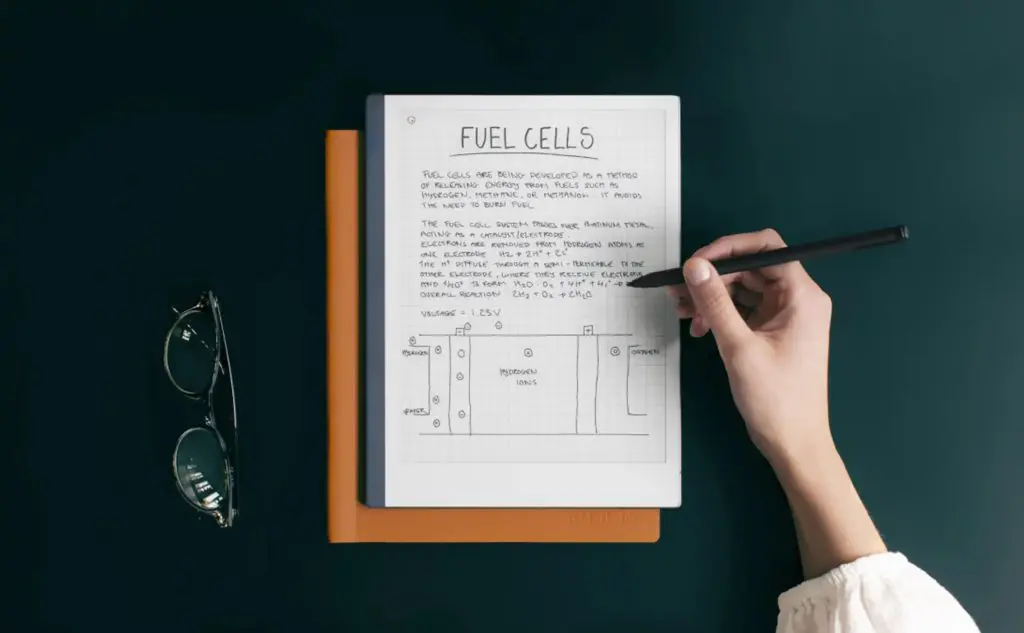 FUEL CELLS
FUEL CELLS ARE BEING DEVELOPED AS A METHOD
OF RELEASING ENERGY FROM FUELS SUCH AS
HYDROGEN, METHANE, OR METHANOL. IT AVOIDS
THE NEED TO BURN FUEL
THE FUEL CELL SYSTEM PASSES OVER PLATINUM METAL,
ACTING AS A CATALYST/ELECTRODE.
ELECTRONS ARE REMOVED FROM HYDROGEN ATOMS AT
ONE ELECTRODE H₂ → 2H⁺ + 2e⁻
THE H⁺ DIFFUSE THROUGH A SEMI-PERMEABLE TO THE
OTHER ELECTRODE, WHERE THEY RECEIVE ELECTRONS
AND TO FORM H₂O: O₂ + 4H⁺ + 4e⁻ →
OVERALL REACTION 2H₂ + O₂ → 2H₂O
VOLTAGE = 1.23V
- +
HYDROGEN
HYDROGEN
IONS